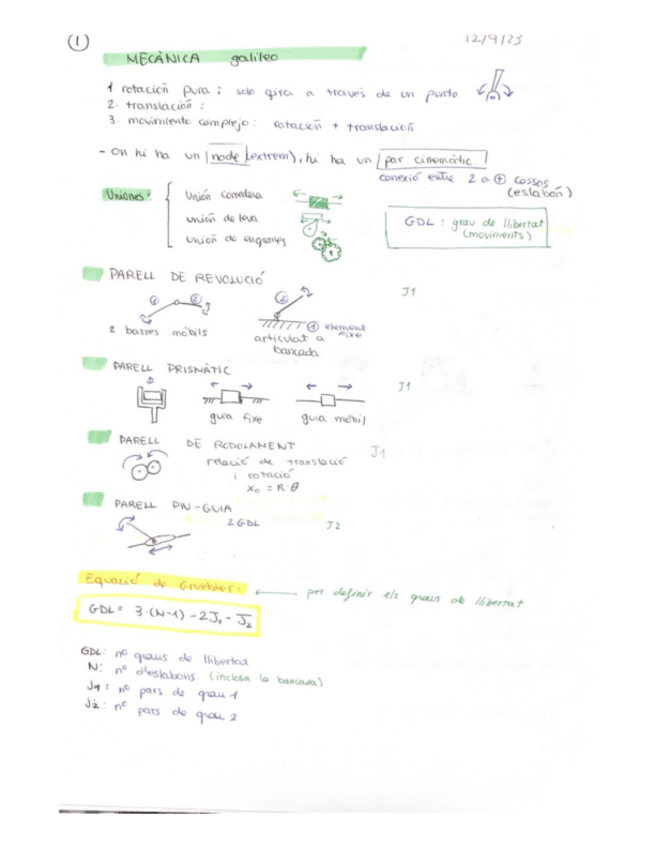 (1)
12/9/23
MECÀNICA galileo
1 rotación pura : solo gira a través de un punto
2. translación :
3. movimiento complejo : rotación + translación
- On hi ha un node (extrem), hi ha un par cinemàtic.
conexió entre 2 o ⊕ cossos
(eslabón)
Uniones:
Unión corredera
unión de leva
unión de engranes
GDL : grau de llibertat
(moviments)
PARELL DE REVOLUCIÓ
J1
① ②
2 barres mòbils
②
① element fixe
articulat a
bancada
PARELL PRISMÀTIC
J1
guia fixe
guia mòbil
PARELL DE RODOLAMENT
J1
relació de translació
i rotació
x₀ = R·θ
PARELL PIN-GUIA
2 GDL
J2
Equació de Gruebler:
per definir els graus de llibertat
GDL = 3·(N-1) - 2J₁ - J₂
GDL: nº graus de llibertat
N: nº d'eslabons (inclosa la bancada)
J1 : nº pars de grau 1
J2 : nº pars de grau 2